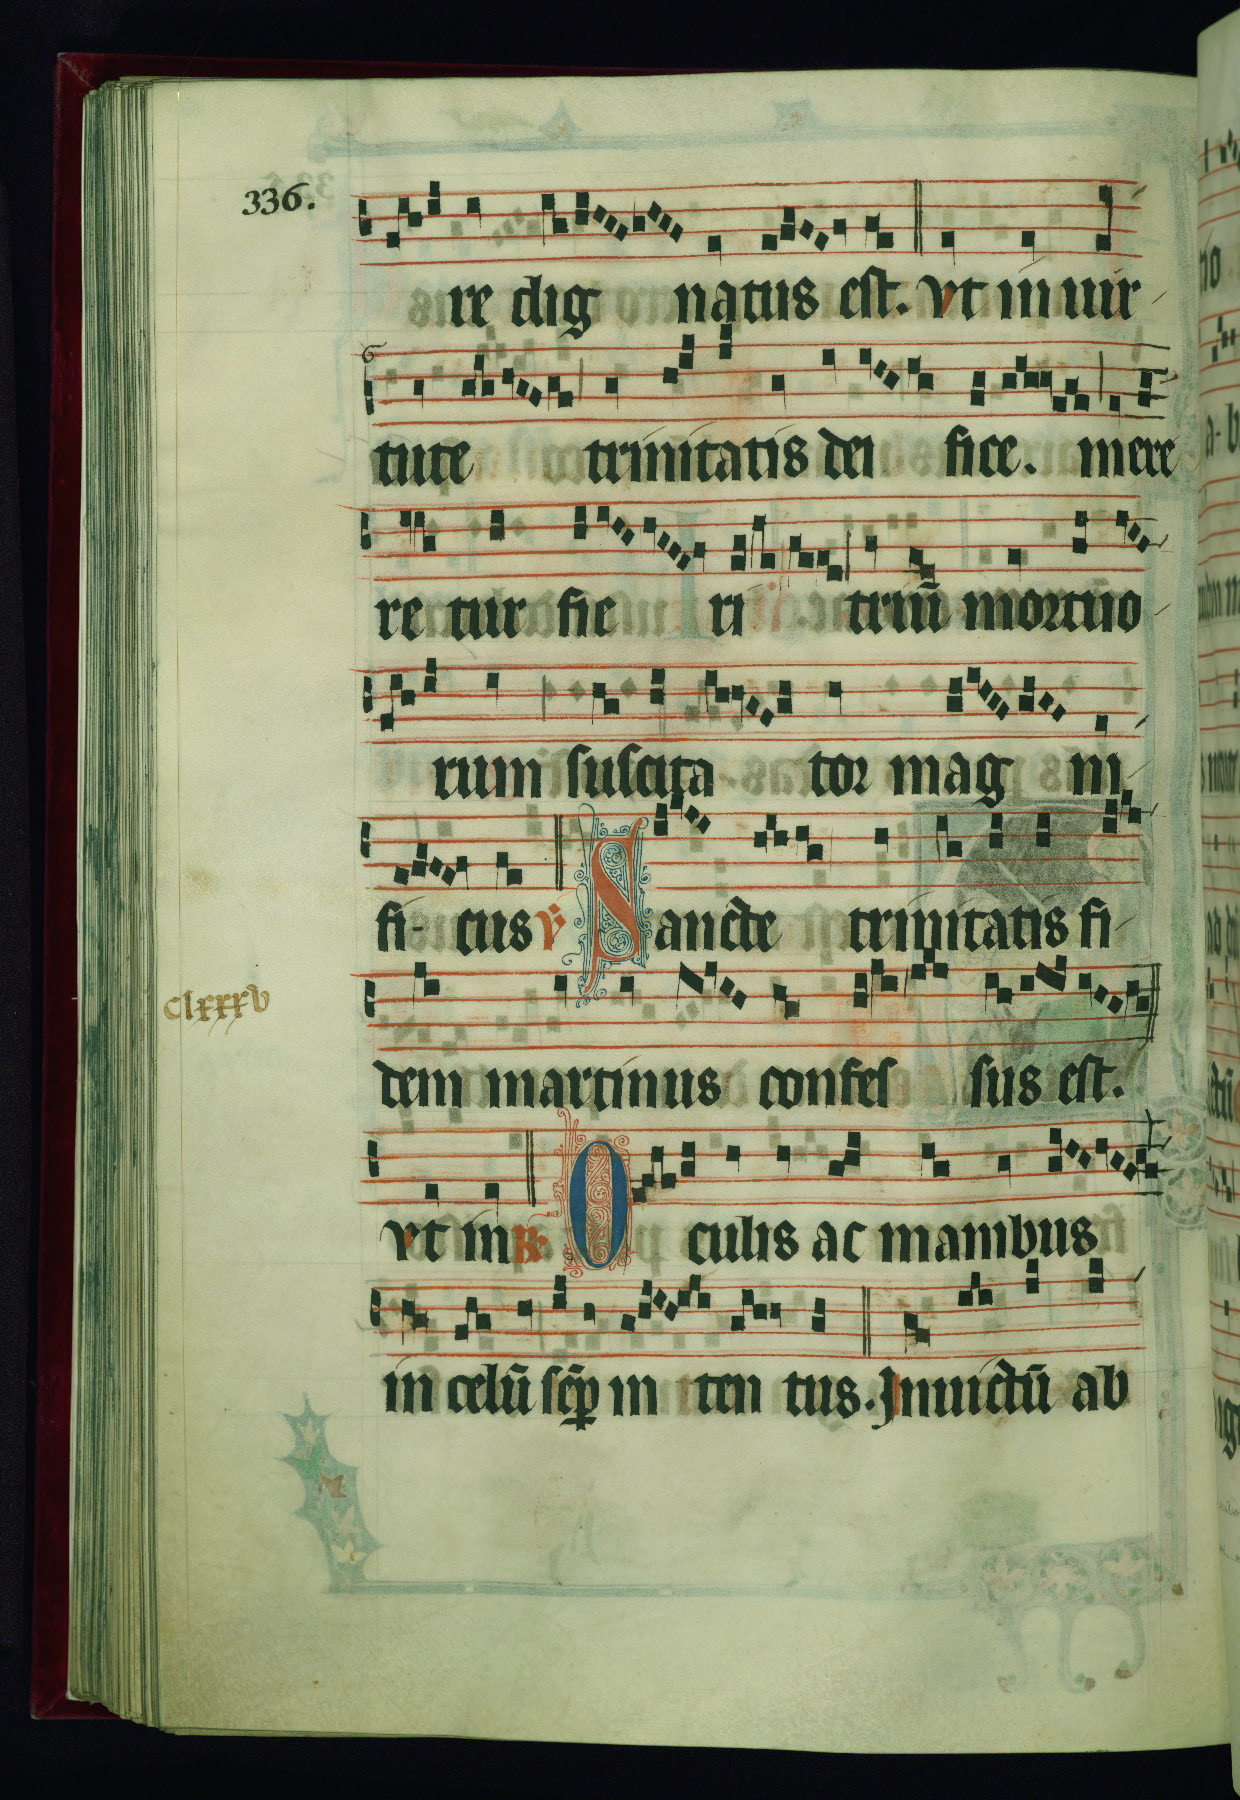 336.
re dig natus est. vt in uir
6
tute trinitatis dei fice. mere
re tur fie ri triū mortuo
rum suscita tor mag ni
fi- cus ꝟ Sancte trinitatis fi
Clxxxv
dem martinus confes sus est.
vt in ℟ Oculis ac manibus
in celū sēp in ten tus. Inuictū ab